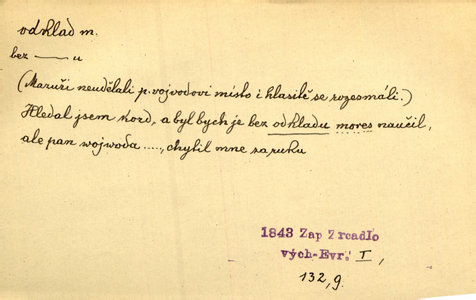 odklad m.
bez —— u
(Mazuři neudělali p. vojvodovi místo i hlasitě se rozesmáli.)
Hledal jsem kord, a byl bych je bez odkladu mores naučil,
ale pan wojwoda ....., chytil mne za ruku
1843 Zap Zrcadlo
vých-Evr. I,
132, 9.